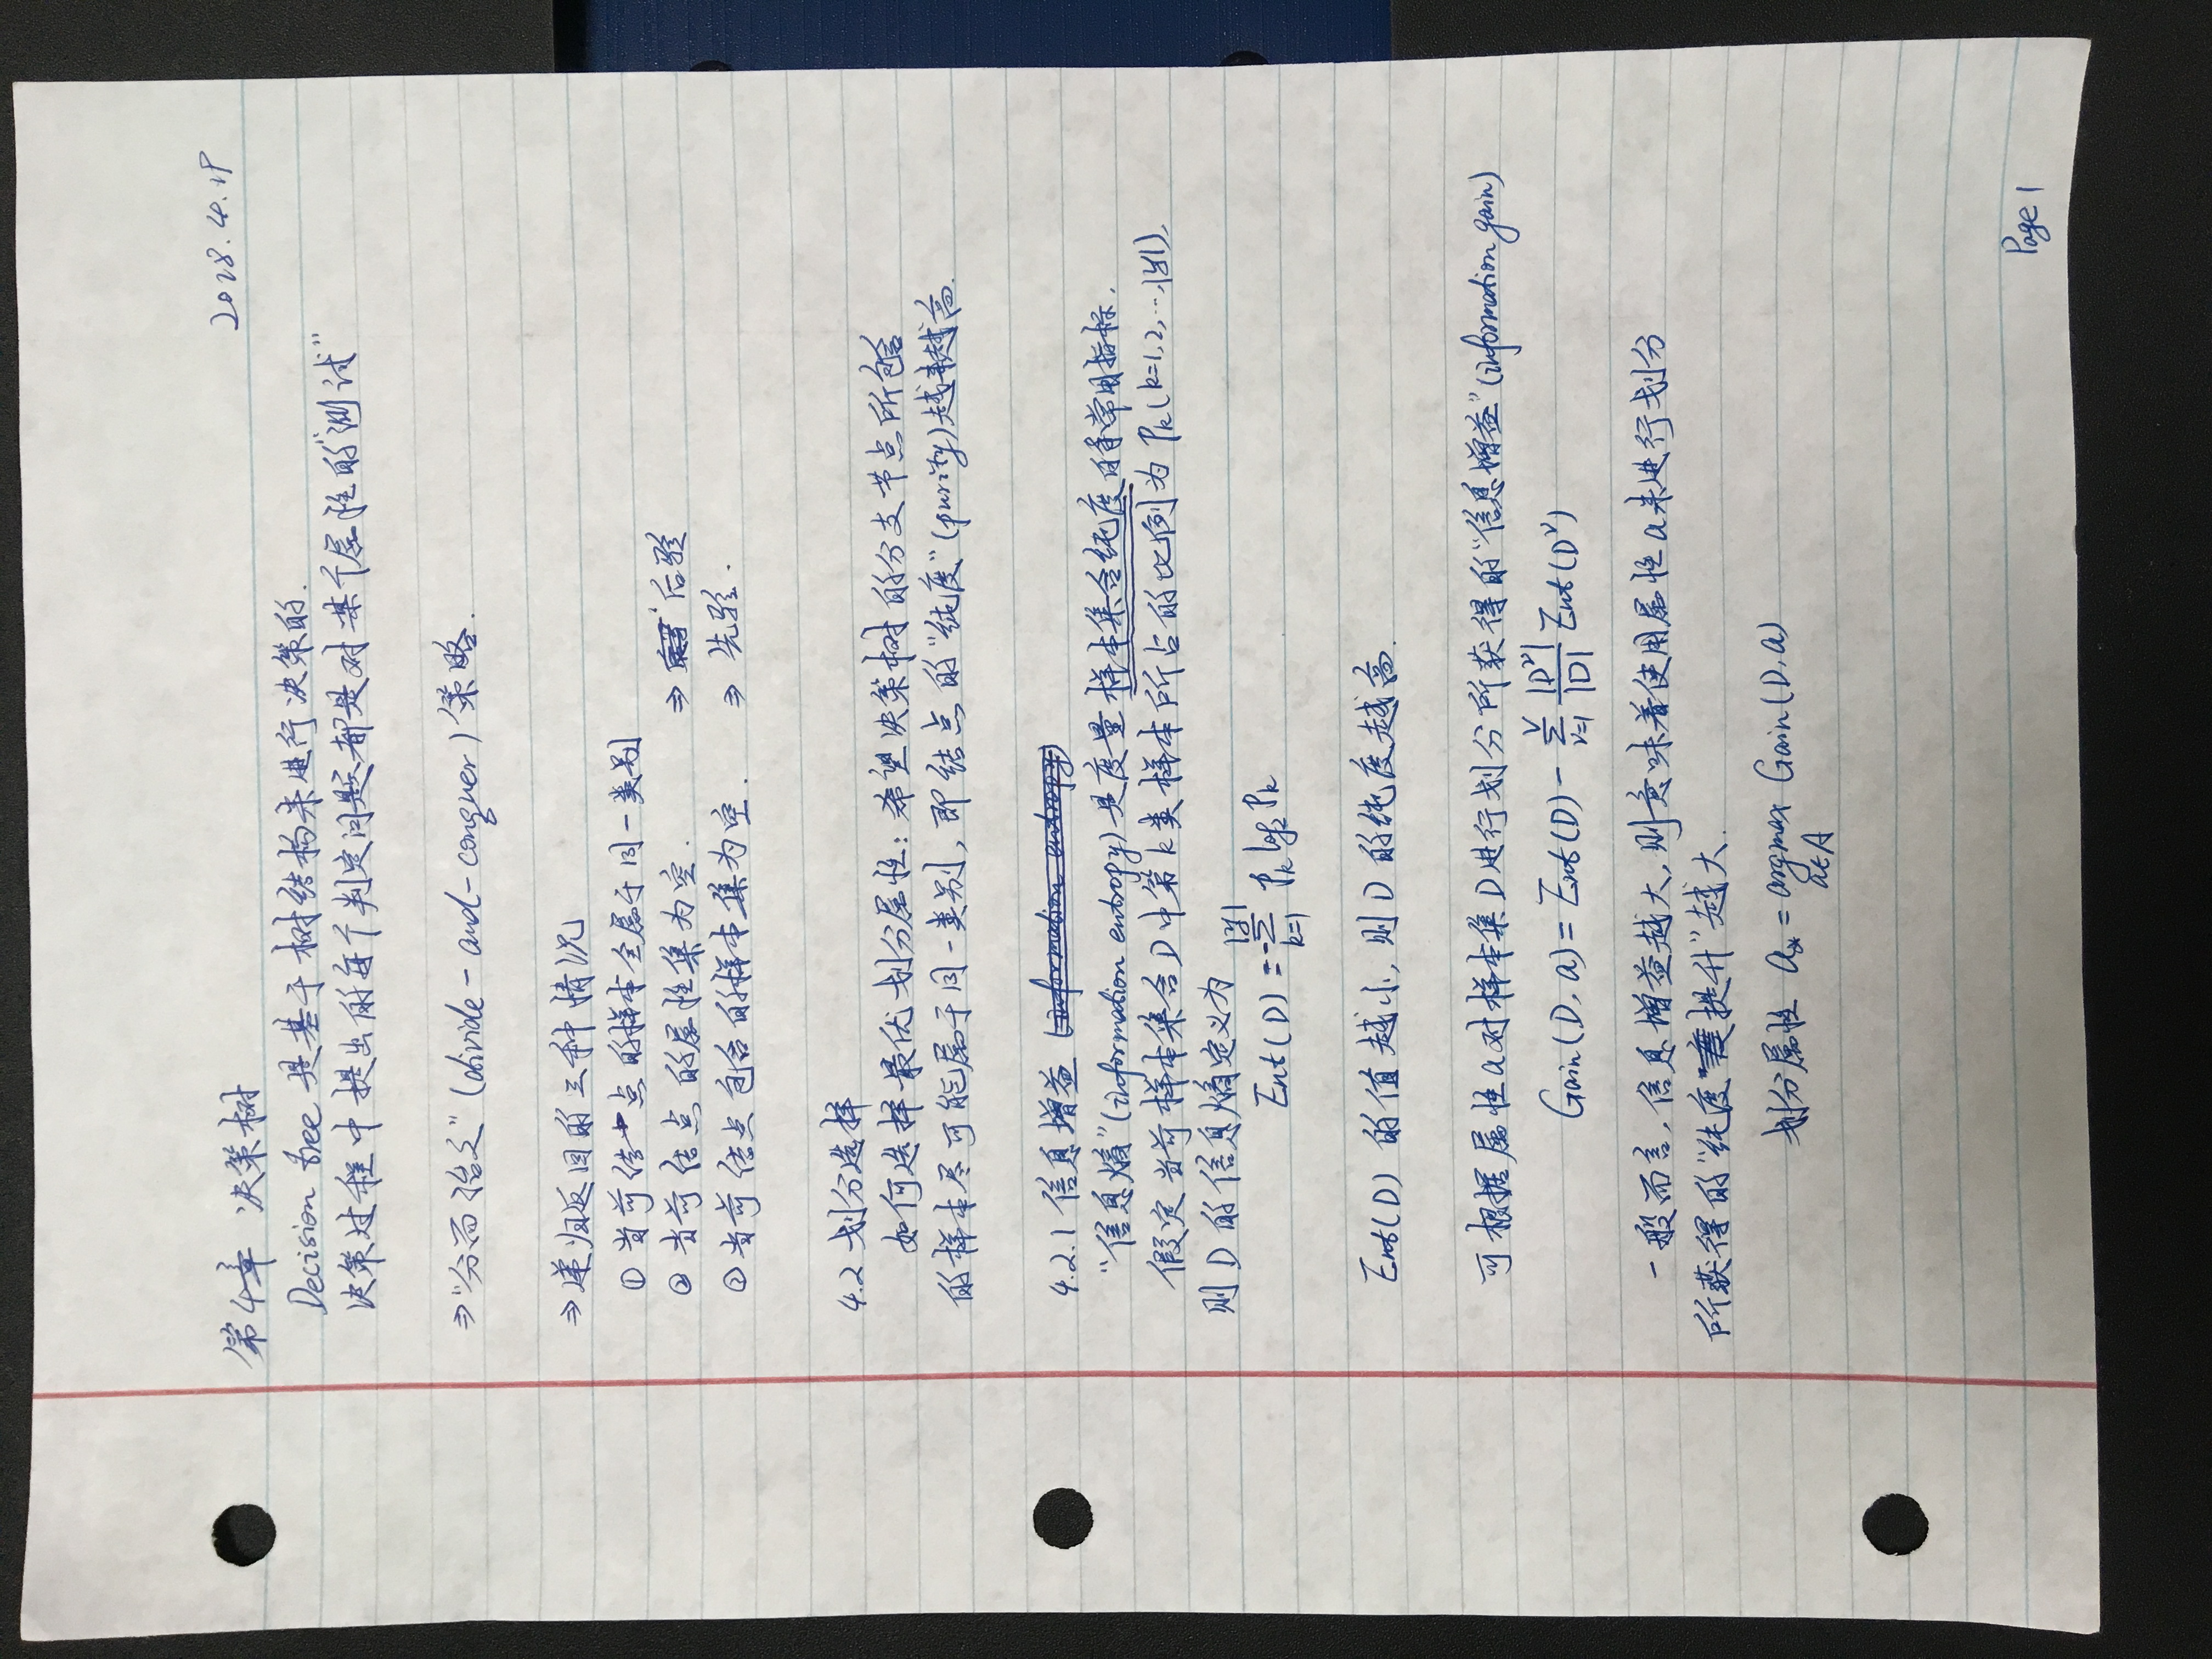 2018.4.19
第4章 决策树
Decision tree 是基于树结构来进行决策的.
决策过程中提出的每个判定问题都是对某个属性的“测试”
⇒“分而治之”(divide-and-conquer)策略.
⇒递归返回的三种情况
① 当前结点的样本全属于同一类别
② 当前结点的属性集为空. ⇒ 后验
③ 当前结点包含的样本集为空. ⇒ 先验.
4.2 划分选择
如何选择最优划分属性：希望决策树的分支节点所包含
的样本尽可能属于同一类别, 即结点的“纯度”(purity)越来越高.
4.2.1 信息增益 (information entropy)
“信息熵”(information entropy)是度量样本集合纯度的常用指标.
假定当前样本集合D中第k类样本所占的比例为 Pk(k=1,2,…,|y|),
则D的信息熵定义为
Ent(D) = -∑_{k=1}^{|y|} Pk log2 Pk
Ent(D) 的值越小, 则D的纯度越高.
可根据属性a对样本集D进行划分所获得的“信息增益”(information gain)
Gain(D, a) = Ent(D) - ∑_{v=1}^{V} |D^v|/|D| Ent(D^v)
一般而言, 信息增益越大, 则意味着使用属性a来进行划分
所获得的“纯度提升”越大.
划分属性 a* = argmax Gain(D,a)
a∈A
Page 1